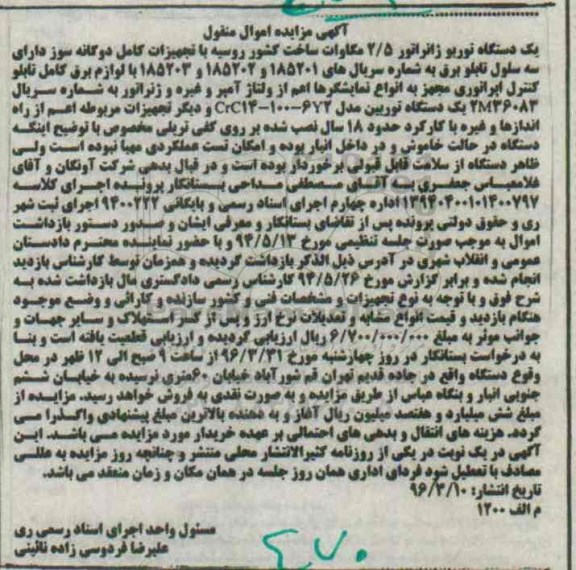 آگهی مزایده اموال منقول
یک دستگاه توربو ژانراتور ۲/۵ مگاوات ساخت کشور روسیه با تجهیزات کامل دوگانه سوز دارای
سه سلول تابلو برق به شماره سریال های ۱۸۵۲۰۱ و ۱۸۵۲۰۲ و ۱۸۵۲۰۳ با لوازم برق کامل تابلو
کنترل اپراتوری مجهز به انواع نمایشگرها اعم از ولتاژ آمپر و غیره و ژنراتور به شماره سریال
۲M۳۶۰۸۳ یک دستگاه توربین مدل CrC۱۴-۱۰۰-۶۷۲ و دیگر تجهیزات مربوطه اعم از راه
اندازها و غیره با کارکرد حدود ۱۸ سال نصب شده بر روی کفی تریلی مخصوص با توضیح اینکه
دستگاه در حالت خاموش و در داخل انبار بوده و امکان تست عملکردی مهیا نبوده است ولی
ظاهر دستگاه از سلامت قابل قبولی برخوردار بوده است و در قبال بدهی شرکت آونگان و آقای
غلامعباس جعفری به آقای مصطفی مداحی بستانکار پرونده اجرای کلاسه
۱۳۹۴۰۴۰۰۱۰۱۴۰۰۷۹۷ اداره چهارم اجرای اسناد رسمی و بایگانی ۹۴۰۰۲۲۲ اجرای ثبت شهر
ری و حقوق دولتی پرونده پس از تقاضای بستانکار و معرفی ایشان و صدور دستور بازداشت
اموال به موجب صورت جلسه تنظیمی مورخ ۹۴/۵/۱۳ و با حضور نماینده محترم دادستان
عمومی و انقلاب شهری در آدرس ذیل الذکر بازداشت گردیده و همزمان توسط کارشناس بازدید
انجام شده و برابر گزارش مورخ ۹۴/۵/۲۶ کارشناس رسمی دادگستری مال بازداشت شده به
شرح فوق و با توجه به نوع تجهیزات و مشخصات فنی و کشور سازنده و کارائی و وضع موجود
هنگام بازدید و قیمت انواع مشابه و تعدیلات نرخ ارز و پس از کسر استهلاک و سایر جهات و
جوانب موثر به مبلغ ۶/۷۰۰/۰۰۰/۰۰۰ ریال ارزیابی گردیده و ارزیابی قطعیت یافته است و بنا
به درخواست بستانکار در روز چهارشنبه مورخ ۹۶/۳/۳۱ از ساعت ۹ صبح الی ۱۲ ظهر در محل
وقوع دستگاه واقع در جاده قدیم تهران قم شورآباد خیابان ۶۰متری نرسیده به خیابان ششم
جنوبی انبار و بنگاه عباس از طریق مزایده و به صورت نقدی به فروش خواهد رسید. مزایده از
مبلغ شش میلیارد و هفتصد میلیون ریال آغاز و به دهنده بالاترین مبلغ پیشنهادی واگذار می
گردد. هزینه های انتقال و بدهی های احتمالی بر عهده خریدار مورد مزایده می باشد. این
آگهی در یک نوبت در یکی از روزنامه کثیرالانتشار محلی منتشر و چنانچه روز مزایده به عللی
مصادف با تعطیل شود فردای اداری همان روز جلسه در همان مکان و زمان منعقد می باشد.
تاریخ انتشار: ۹۶/۳/۱۰
م الف ۱۲۰۰
مسئول واحد اجرای اسناد رسمی ری
علیرضا فردوسی زاده نائینی
۴۷۰